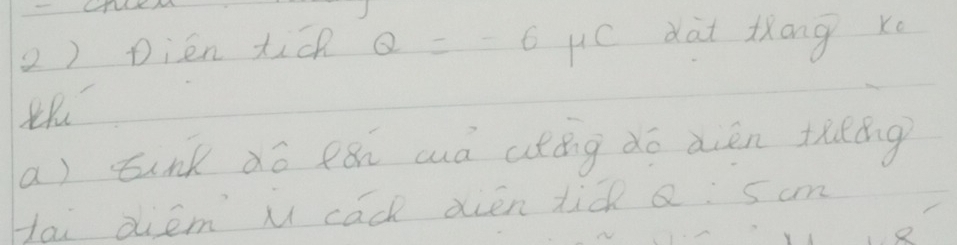 2) Điện tích Q = - 6 μC đặt trong ko
khí
a) tính độ lớn của cường độ điện trường
tại điểm M cách điện tích Q : 5 cm